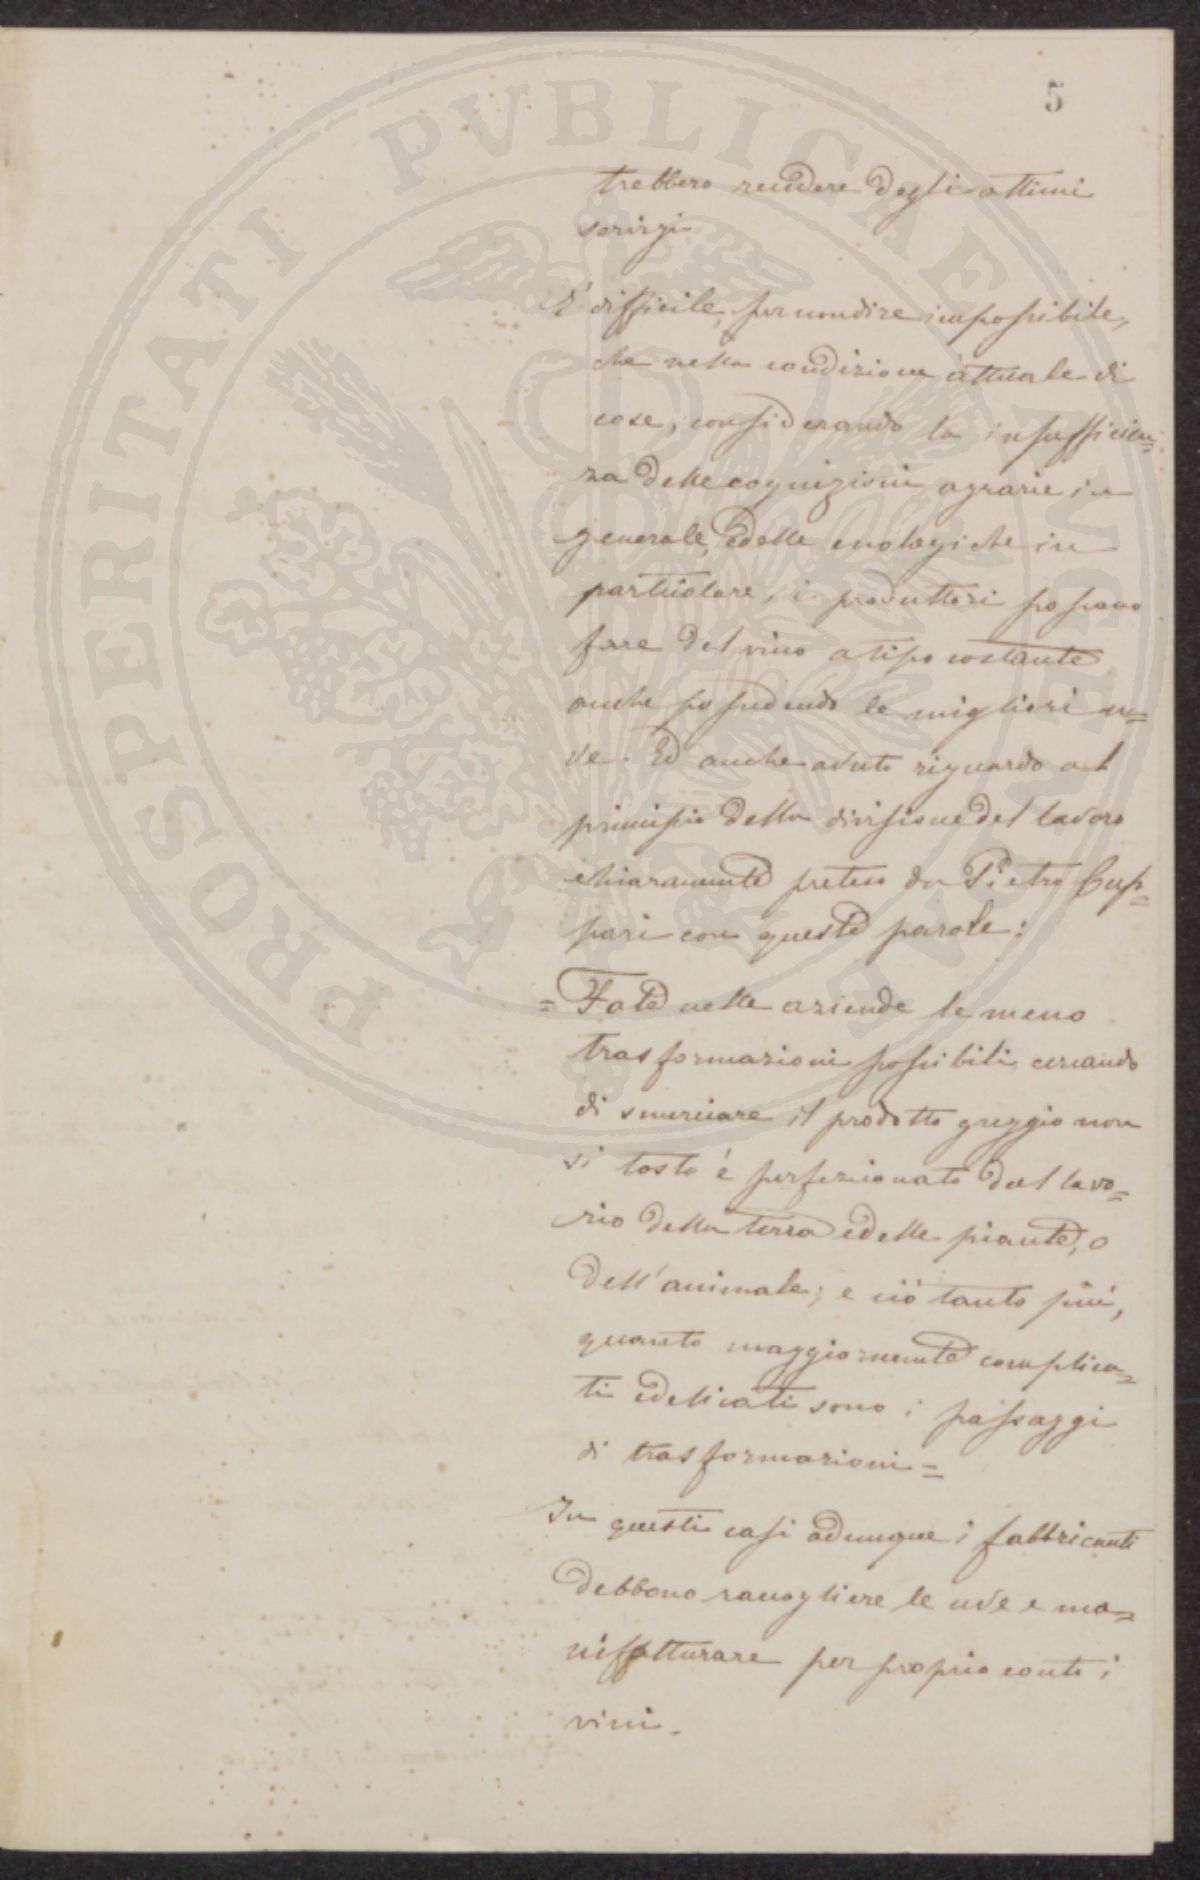 5
trebbero rendere degli ottimi
servizi
É difficile, per non dire impossibile,
che nella condizione attuale di
cose, considerando la insufficien=
za delle cognizioni agrarie in
generale, e delle enologiche in
particolare, i produttori possano
fare del vino a tipo costante
anche possedendo le migliori u=
ve. Ed anche avuto riguardo al
principio della divisione del lavoro
chiaramente preteso da Pietro Cup=
pari con queste parole:
= Fate nelle aziende le meno
trasformazioni possibili, cercando
di smerciare il prodotto greggio non
si tosto é perfezionato dal lavo=
rio della terra e delle piante, o
dell'animale; e ció tanto piú,
quanto maggiormente complica=
ti e delicati sono i passaggi
di trasformazioni =
In questi casi adunque i fabbricanti
debbono raccogliere le uve e ma=
nifatturare per proprio conto i
vini.
PROSPERITATI PVBLICAE AVGENDAE